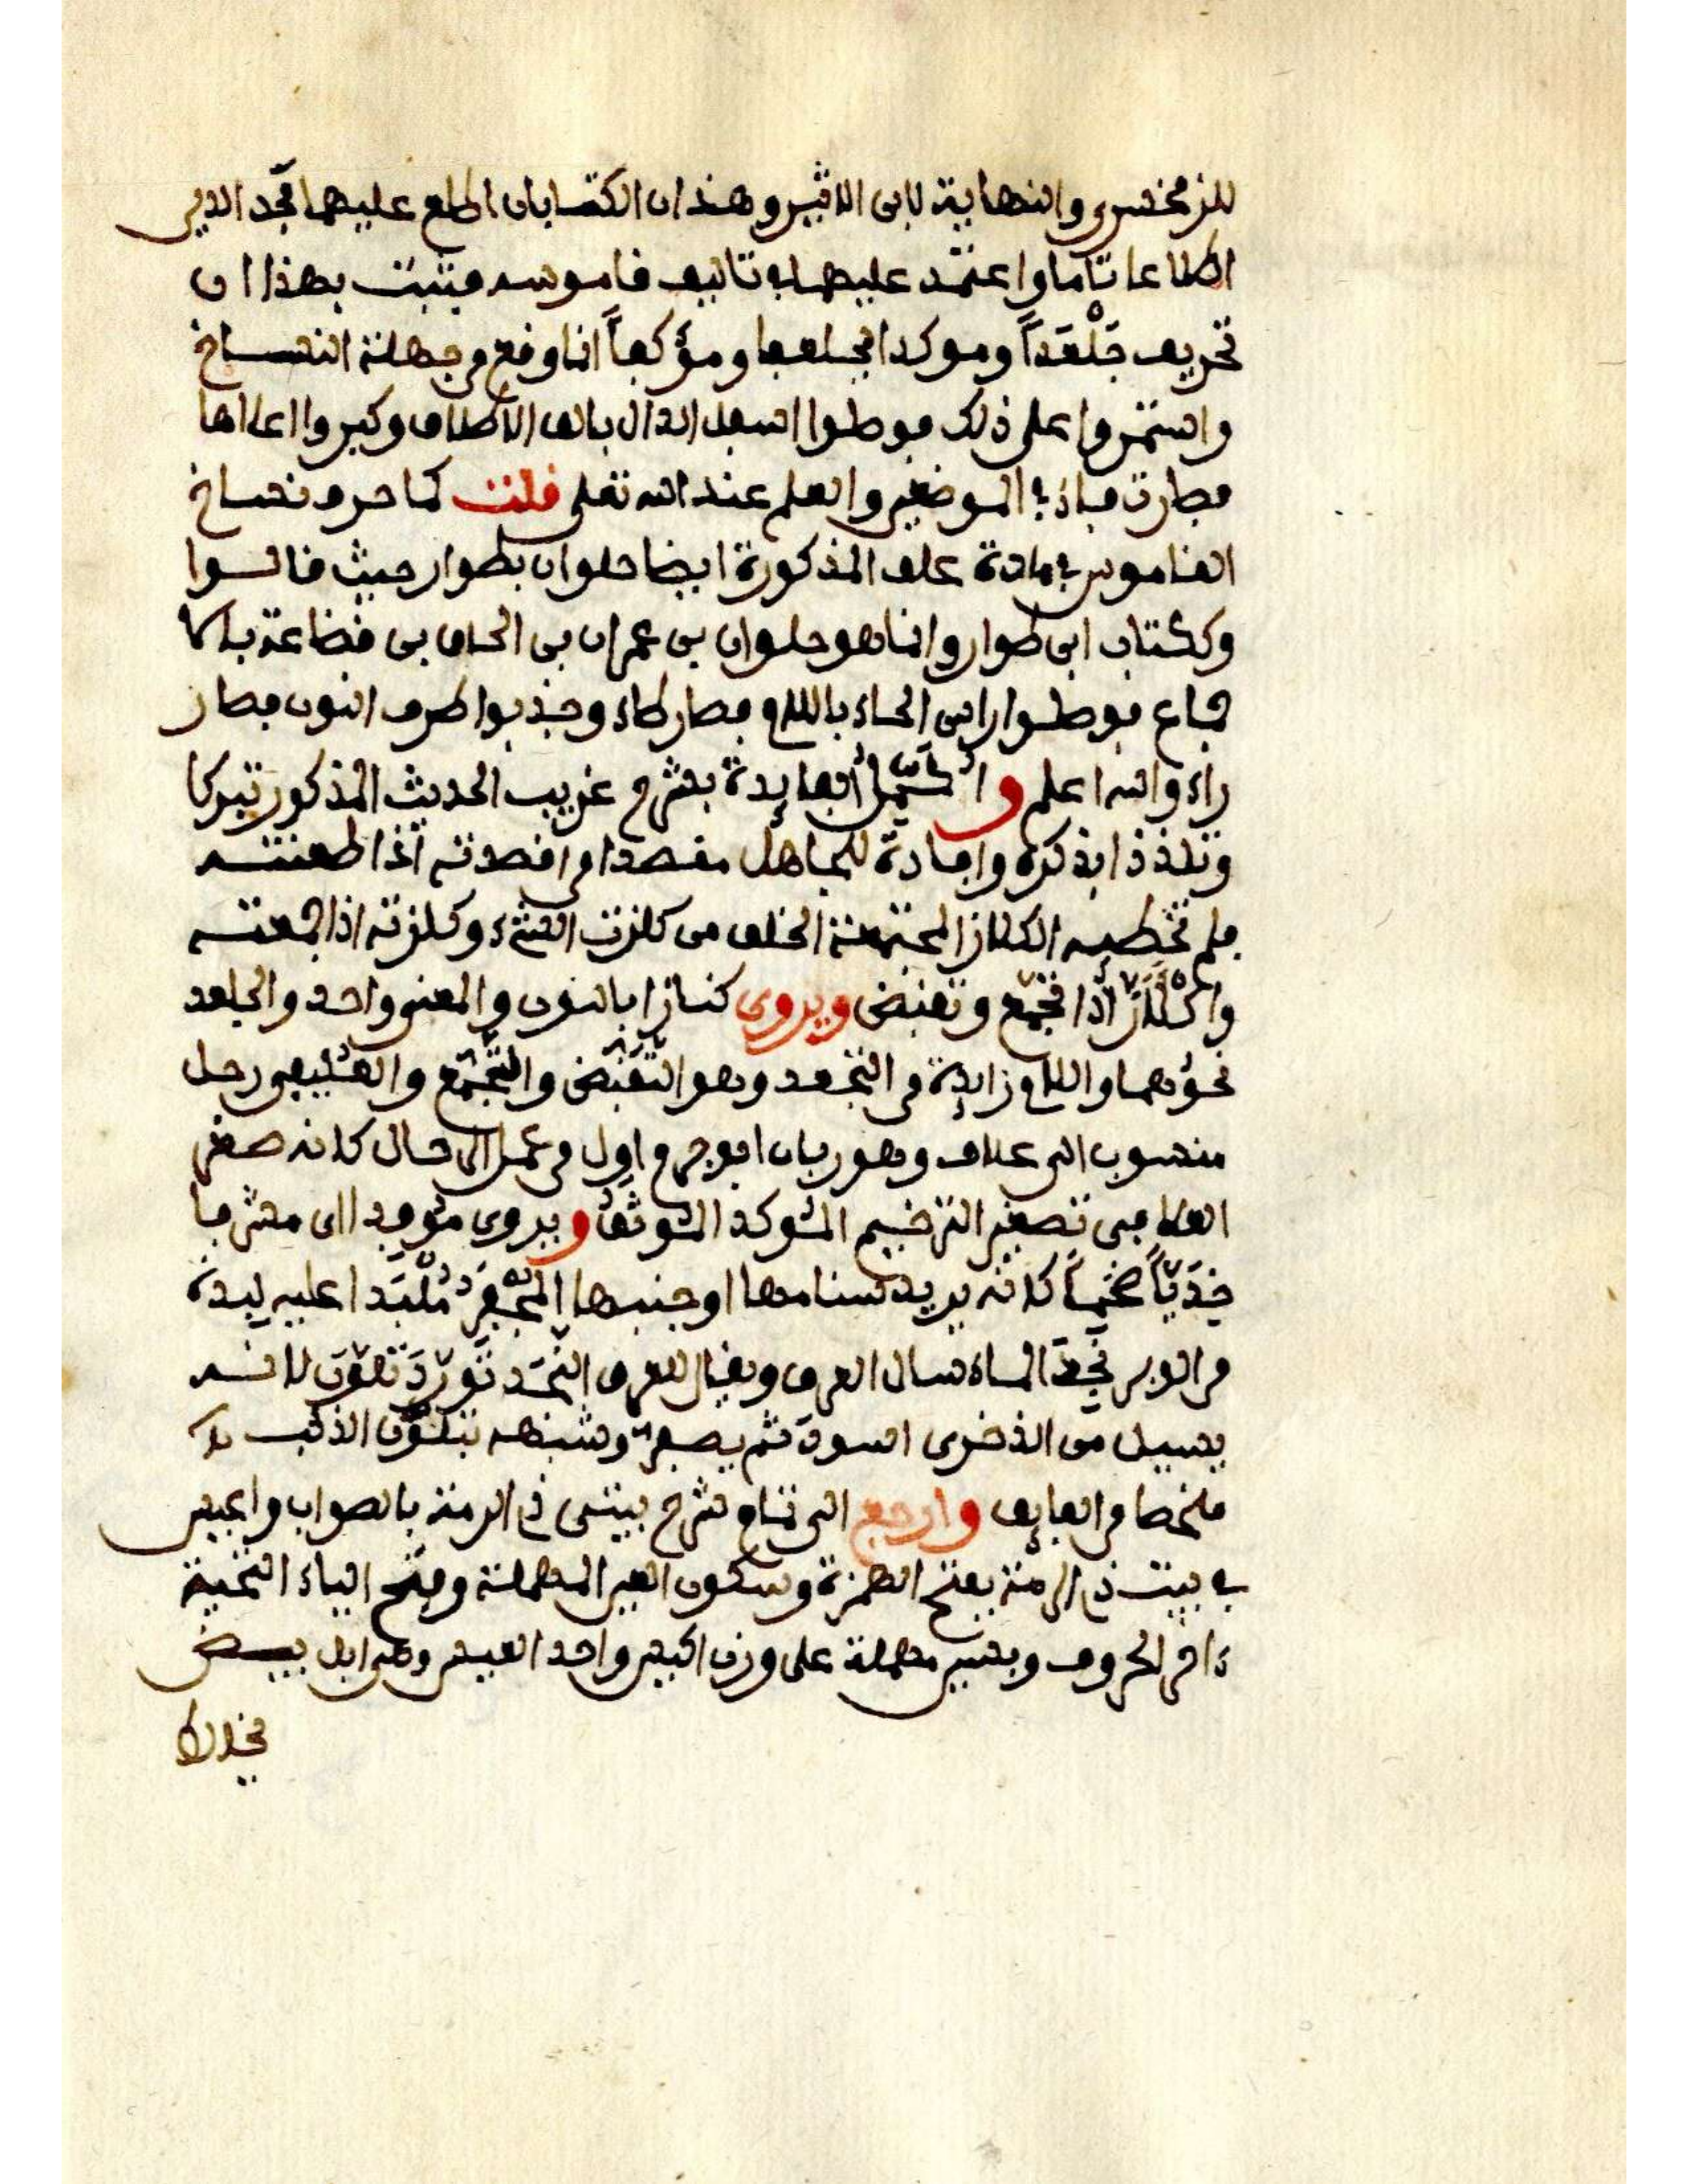 للزمخشري والنهاية لابن الاثير وهذان الكتابان اطلع عليهما مجد الدين
اطلاعا تاما واعتمد عليهما في تاليف قاموسه فتبت بهذا ان
تحريف جَلْعَداً وموكدا بجلعبا ومؤكفاً انما وقع من جهلة النساخ
واستمروا على ذلك فوصلوا اسفل الدال بالف الاطلاق وكبروا اعلاها
فصارت فاء في الموضعين والعلم عند الله تعلى قلت كما حرف نساخ
القاموس في مادة علف المذكورة ايضا حلوان بطوار حيث قالوا
وككتاب ابن طوار وانما هو حلوان بن عمران بن الحاف بن قضاعة بلا
جماع فوصلوا راس الحاء باللام فصار طاء وجذبوا طرف النون فصار
راء والله اعلم و الفايدة بشرح غريب الحديث المذكور تبركا
وتلذذا بذكره وافادة للجاهل مقصدا من اقصدته اذا طعنته
فلم تخطيه الكلاز المجتمعة الخلق من كلزت الشيء وكلزته اذا جمعته
واكْلَأَزَّ اذا تجمع وتقبض ويروى كنازا بالنون والمعنى واحد والجلعد
نحوهما واللام زايدة من التجعد وهو التقبض والتجمع والعليفي رحل
منسوب الى علاف وهو ربان ابو جرم اول من عمل الرحال كانه صغر
العلافي تصغير الترخيم الموكد الموثق ويروى موفدا اي مشرفا
خِدَبّاً ضخماً كانه يريد سنامها او جنبها المجفر مُلْبَدا عليه لبدة
من الوبر نجد الماء سال العرق ويقال للعرق النجد تورد تلون لانه
يسيل من الذفرى اسود ثم يصفر وشبهه بتلون الذئب
ملخصا من الفايق وارجع الى تمام شرح بيتى ذي الرمة بالصواب واعيس
في بيت ذي الرمة بفتح الهمزة وسكون العين المهملة وفتح الياء التحتية
ءاخر الحروف وبسين مهملة على وزن اكيس واحد العيس وهي ابل بيض
يخالط